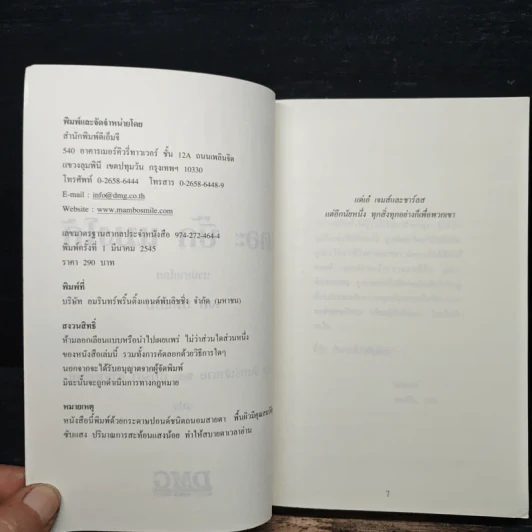 พิมพ์และจัดจำหน่ายโดย
สำนักพิมพ์ดีเอ็มจี
540 อาคารเมอร์คิวรี่ทาวเวอร์ ชั้น 12A ถนนเพลินจิต
แขวงลุมพินี เขตปทุมวัน กรุงเทพฯ 10330
โทรศัพท์ 0-2658-6444 โทรสาร 0-2658-6448-9
E-mail : info@dmg.co.th
Website : www.mambosmile.com
เลขมาตรฐานสากลประจำหนังสือ 974-272-464-4
พิมพ์ครั้งที่ 1 มีนาคม 2545
ราคา 290 บาท
พิมพ์ที่
บริษัท อมรินทร์พริ้นติ้งแอนด์พับลิชชิ่ง จำกัด (มหาชน)
สงวนสิทธิ์
ห้ามลอกเลียนแบบหรือนำไปเผยแพร่ ไม่ว่าส่วนใดส่วนหนึ่ง
ของหนังสือเล่มนี้ รวมทั้งการคัดลอกด้วยวิธีการใดๆ
นอกจากจะได้รับอนุญาตจากผู้จัดพิมพ์
มิฉะนั้นจะถูกดำเนินการทางกฎหมาย
หมายเหตุ
หนังสือนี้พิมพ์ด้วยกระดาษปอนด์ชนิดถนอมสายตา พื้นผิวมีคุณสมบัติ
ซับแสง ปริมาณการสะท้อนแสงน้อย ทำให้สบายตาเวลาอ่าน
แด่เอ๋ เจมส์และชาร์ลส
แต่อีกนัยหนึ่ง ทุกสิ่งทุกอย่างก็เพื่อพวกเขา
7